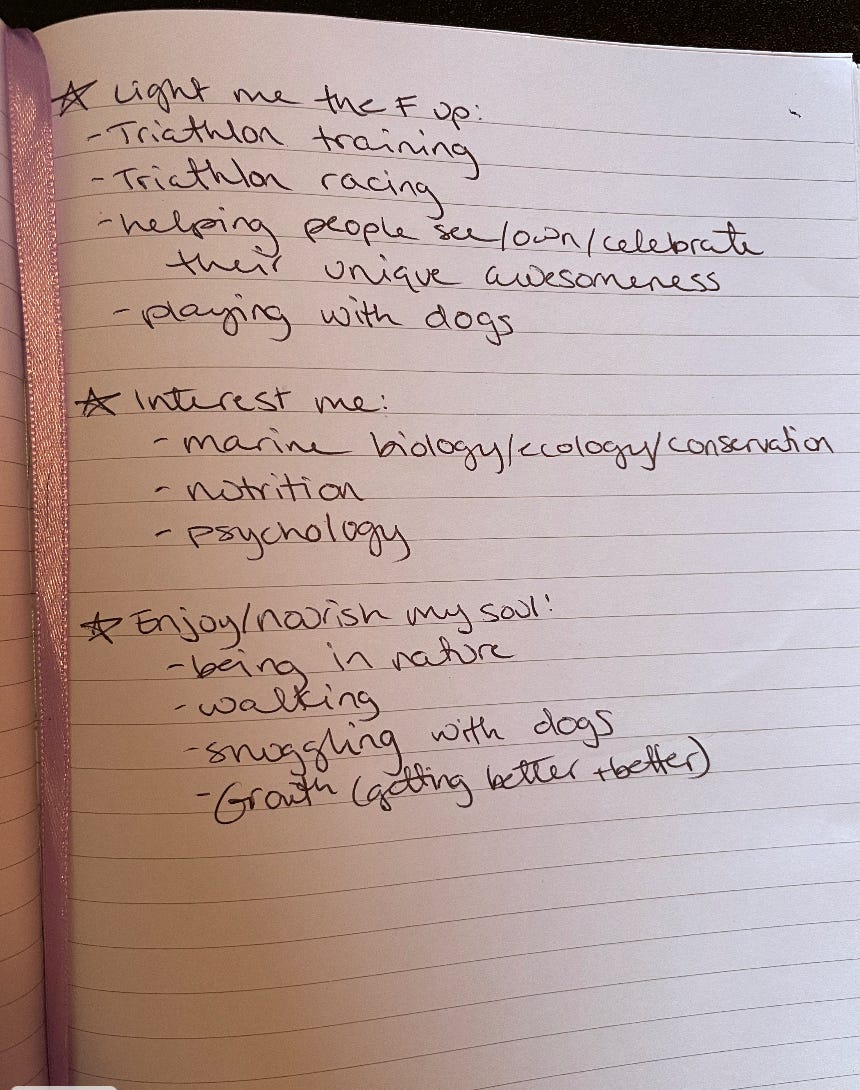 ☆ Light me the F up:
- Triathlon training
- Triathlon racing
- helping people see/own/celebrate
their unique awesomeness
- playing with dogs
☆ Interest me:
- marine biology/ecology/conservation
- nutrition
- psychology
☆ Enjoy/nourish my soul:
- being in nature
- walking
- snuggling with dogs
- Growth (getting better + better)